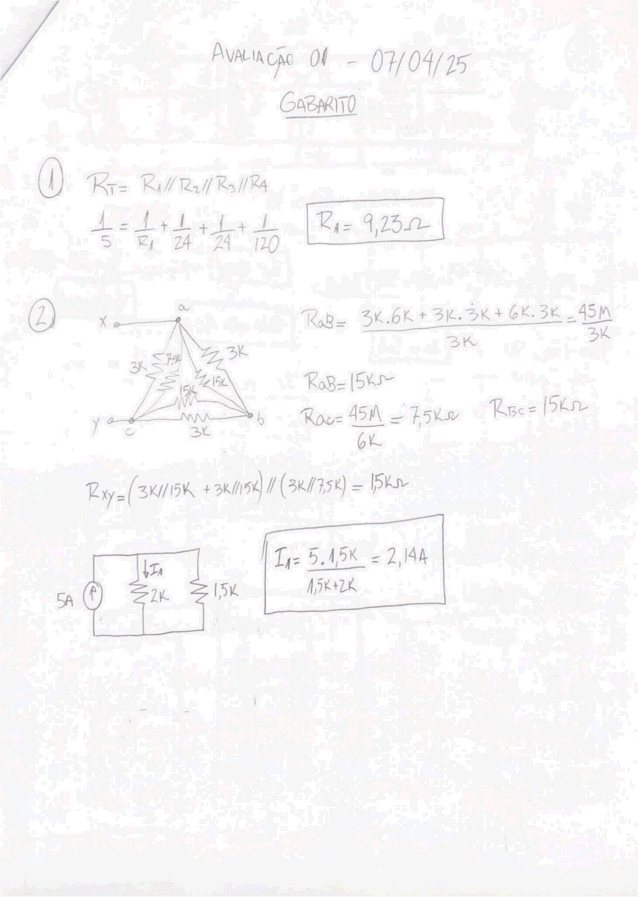 AVALIAÇÃO 01 - 07/04/25
GABARITO
1 RT= R1//R2//R3//R4
1/5 = 1/R1 + 1/24 + 1/24 + 1/120 R1= 9,23Ω
2 x a
3K 7,5K 15K 3K
15K
y c 3K b
RAB= 3K.6K + 3K.3K + 6K.3K / 3K = 45M / 3K
RAB=15KΩ
RAC= 45M / 6K = 7,5KΩ RBC=15KΩ
RXY=(3K//15K + 3K//15K)//(3K//7,5K)= 1,5KΩ
5A I1 2K 1,5K
I1= 5.1,5K / 1,5K+2K = 2,14A